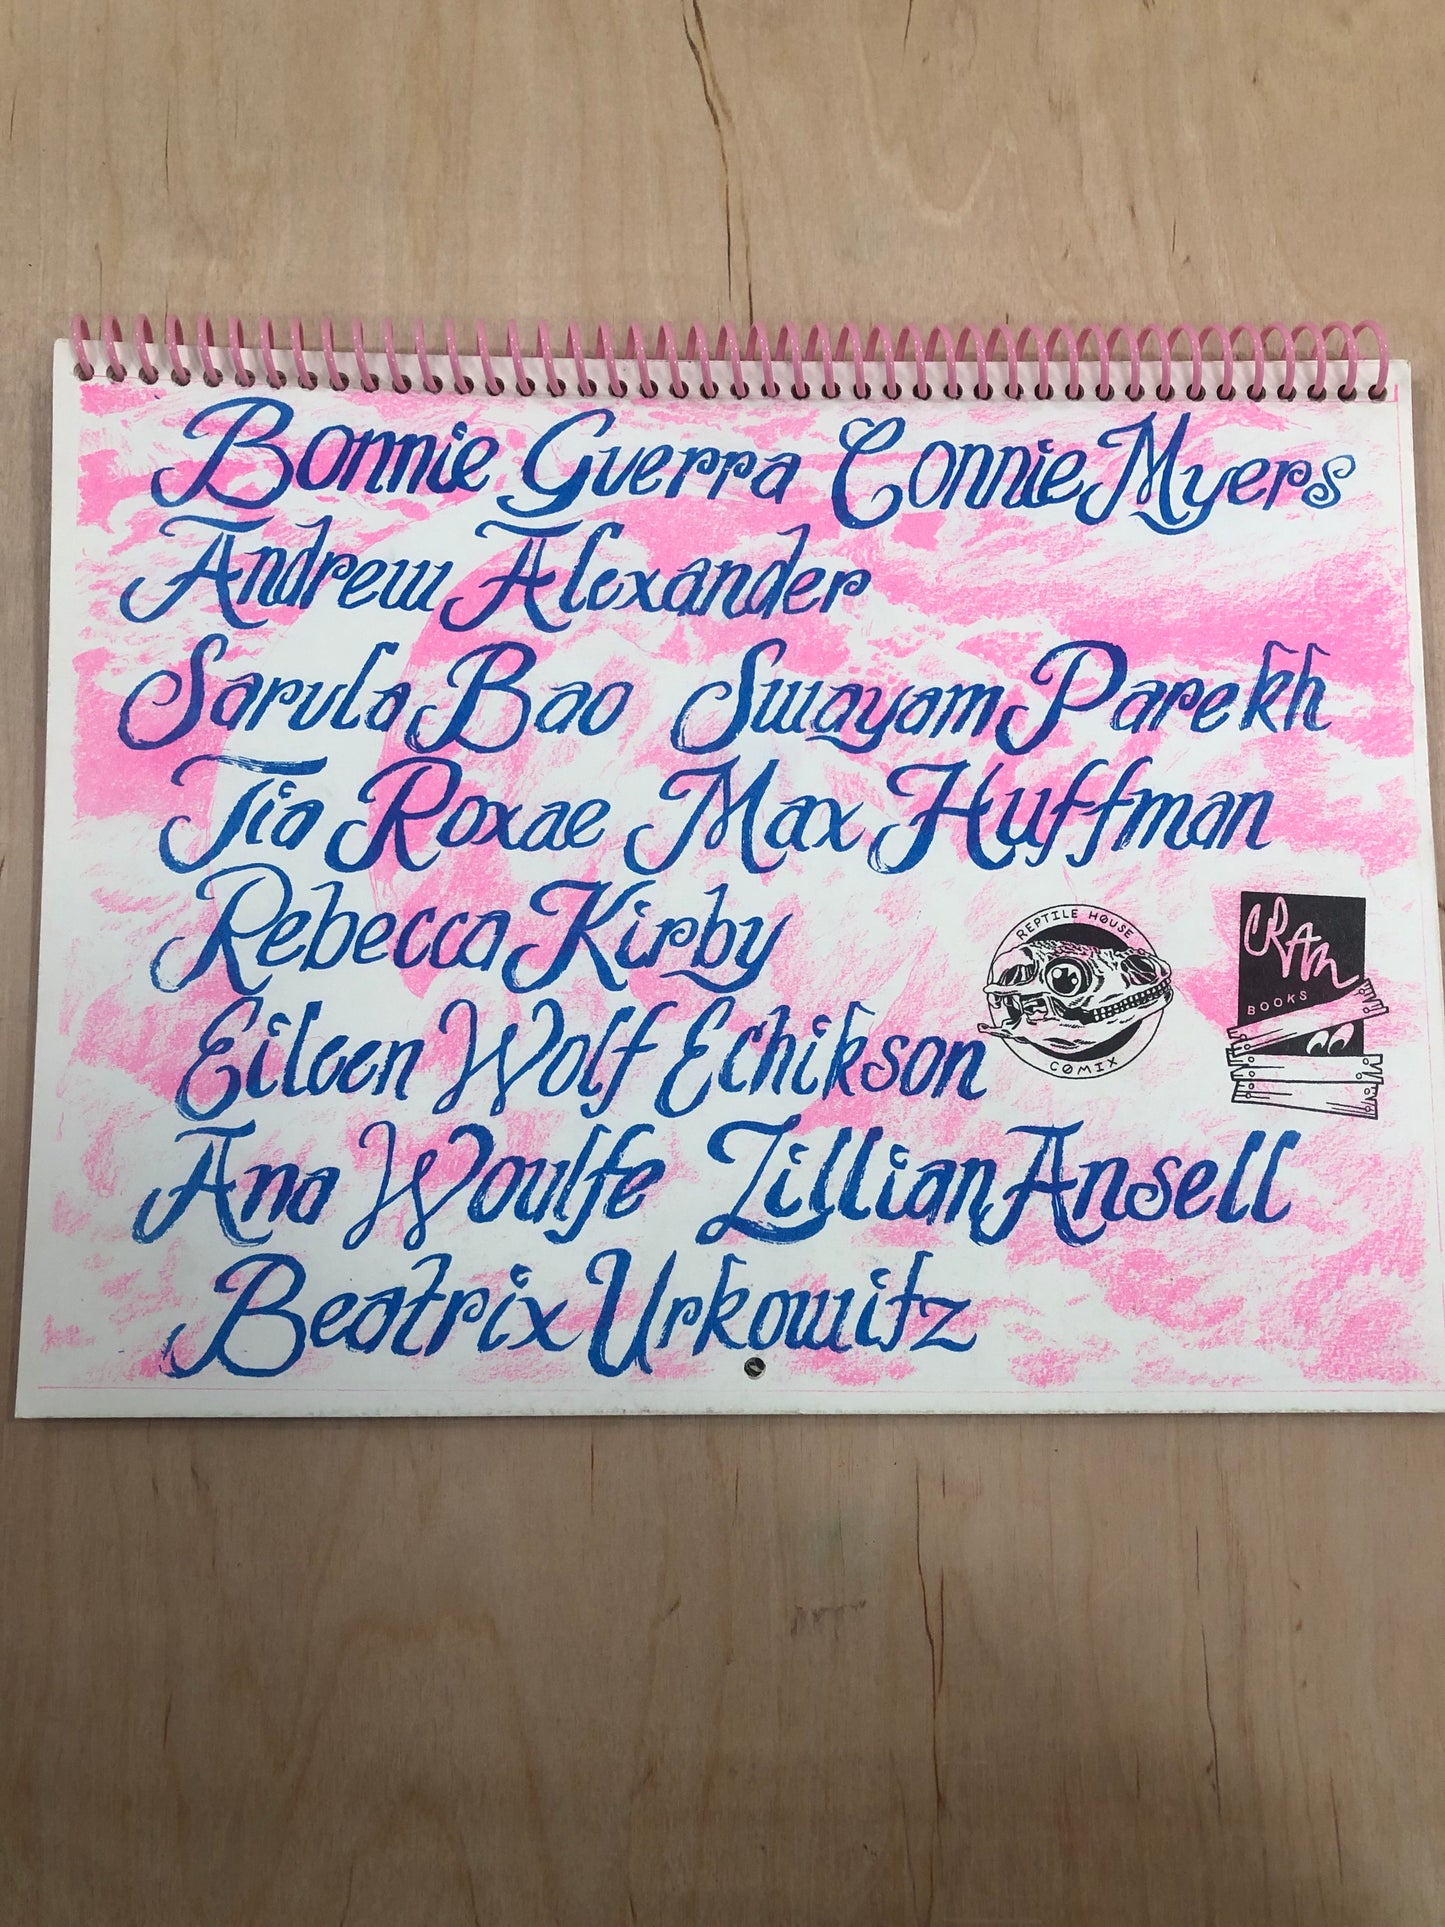 Bonnie Guerra Connie Myers
Andrew Alexander
Sarula Bao Swayam Parekh
Tia Roxae Max Huffman
Rebecca Kirby
REPTILE HØUSE
CØMIX
CRAM
BOOKS
Eileen Wolf Echikson
Ana Woulfe Lillian Ansell
Beatrix Urkowitz